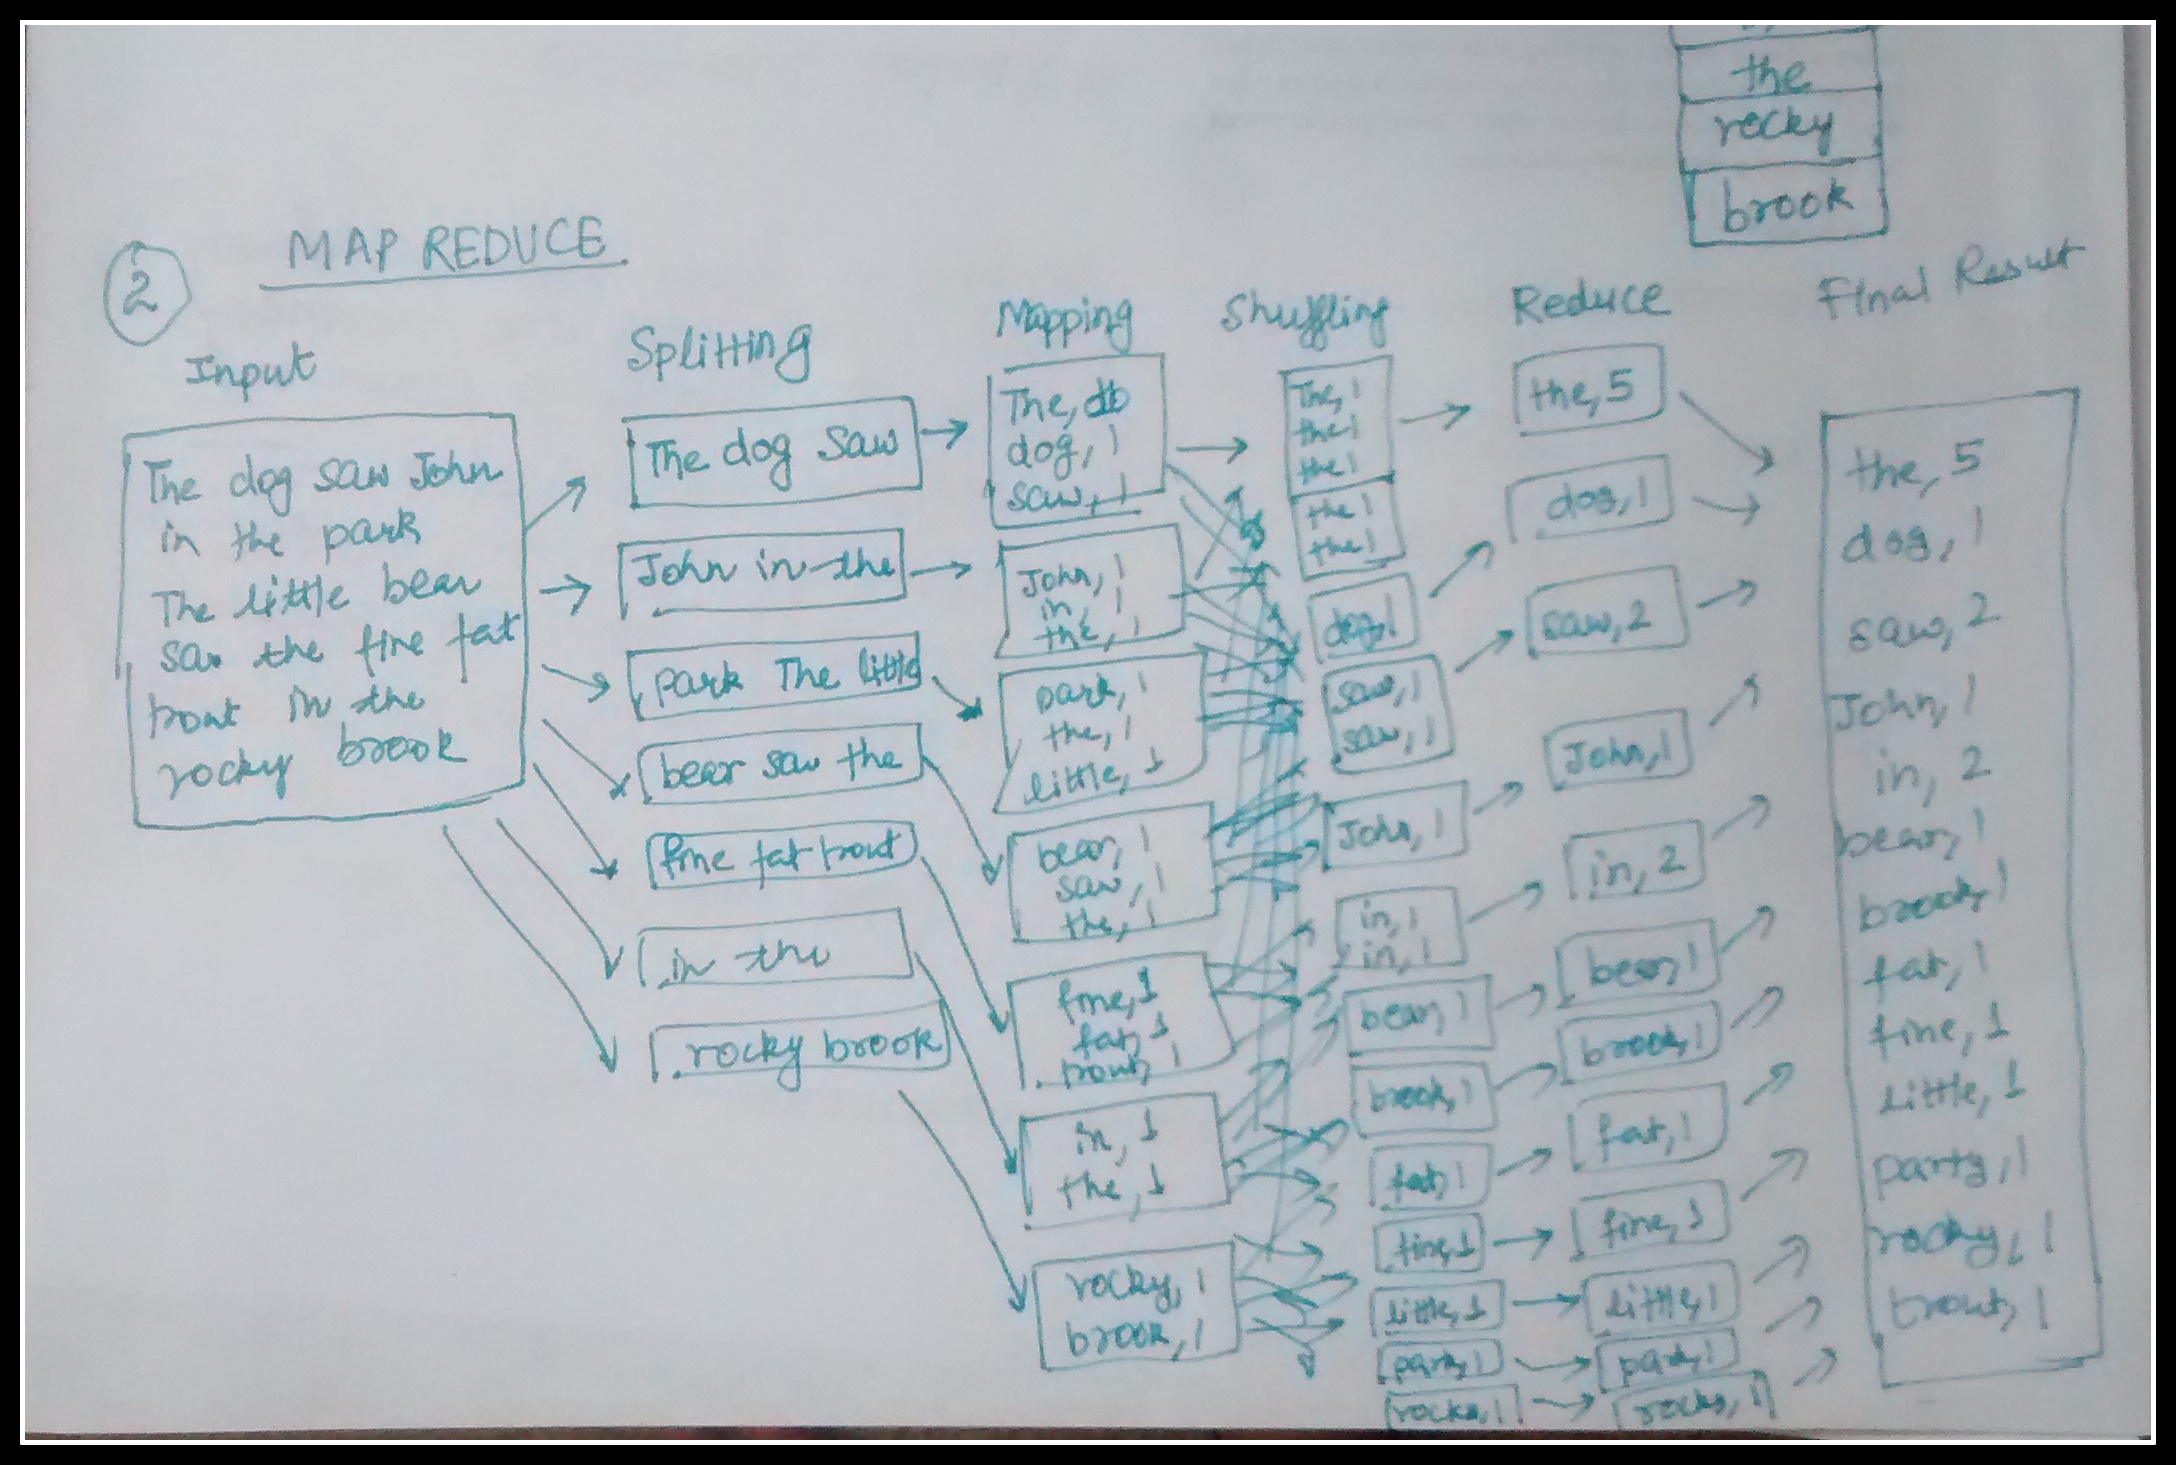 the
rocky
brook
2
MAP REDUCE
Input
The dog saw John
in the park
The little bear
saw the fine fat
trout in the
rocky brook
Splitting
The dog saw
John in the
park The little
bear saw the
fine fat trout
in the
rocky brook
Mapping
The,
dog, 1
saw, 1
John, 1
in, 1
the, 1
park, 1
the, 1
little, 1
bear, 1
saw, 1
the, 1
fine, 1
fat, 1
trout, 1
in, 1
the, 1
rocky, 1
brook, 1
Shuffling
The, 1
the 1
the 1
the 1
the 1
dog, 1
saw, 1
saw, 1
John, 1
in, 1
in, 1
bear, 1
brook, 1
fat, 1
fine, 1
little, 1
park, 1
rocky, 1
Reduce
the, 5
dog, 1
saw, 2
John, 1
in, 2
bear, 1
brook, 1
fat, 1
fine, 1
little, 1
park, 1
rocky, 1
Final Result
the, 5
dog, 1
saw, 2
John, 1
in, 2
bear, 1
brook, 1
fat, 1
fine, 1
little, 1
party, 1
rocky, 1
trout, 1